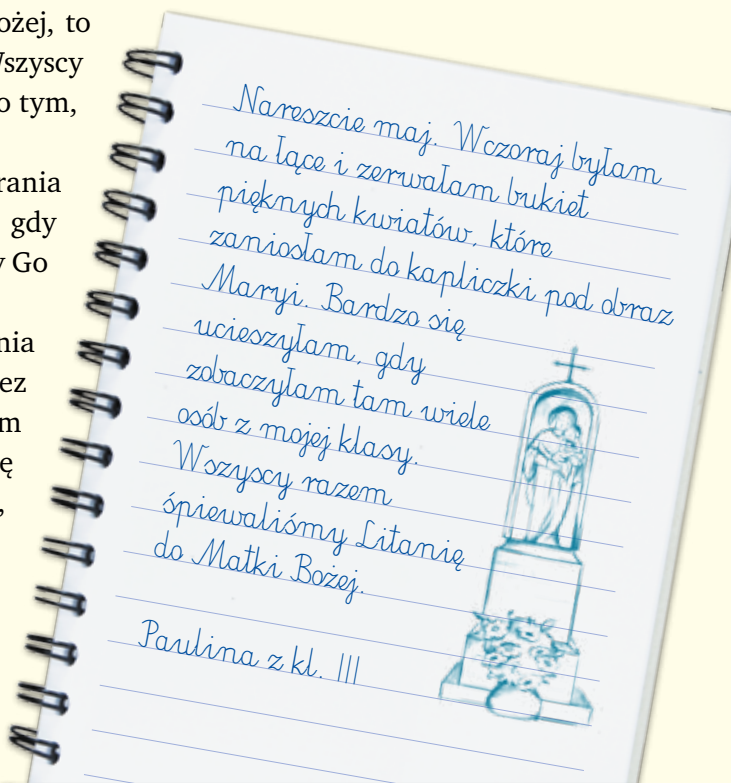 ożej, to
Wszyscy
o tym,
rania
gdy
y Go
nia
ez
m
ę
,
Nareszcie maj. Wczoraj byłam
na łące i zerwałam bukiet
pięknych kwiatów, które
zaniosłam do kapliczki pod obraz
Maryi. Bardzo się
ucieszyłam, gdy
zobaczyłam tam wiele
osób z mojej klasy.
Wszyscy razem
śpiewaliśmy Litanię
do Matki Bożej.
Paulina z kl. III